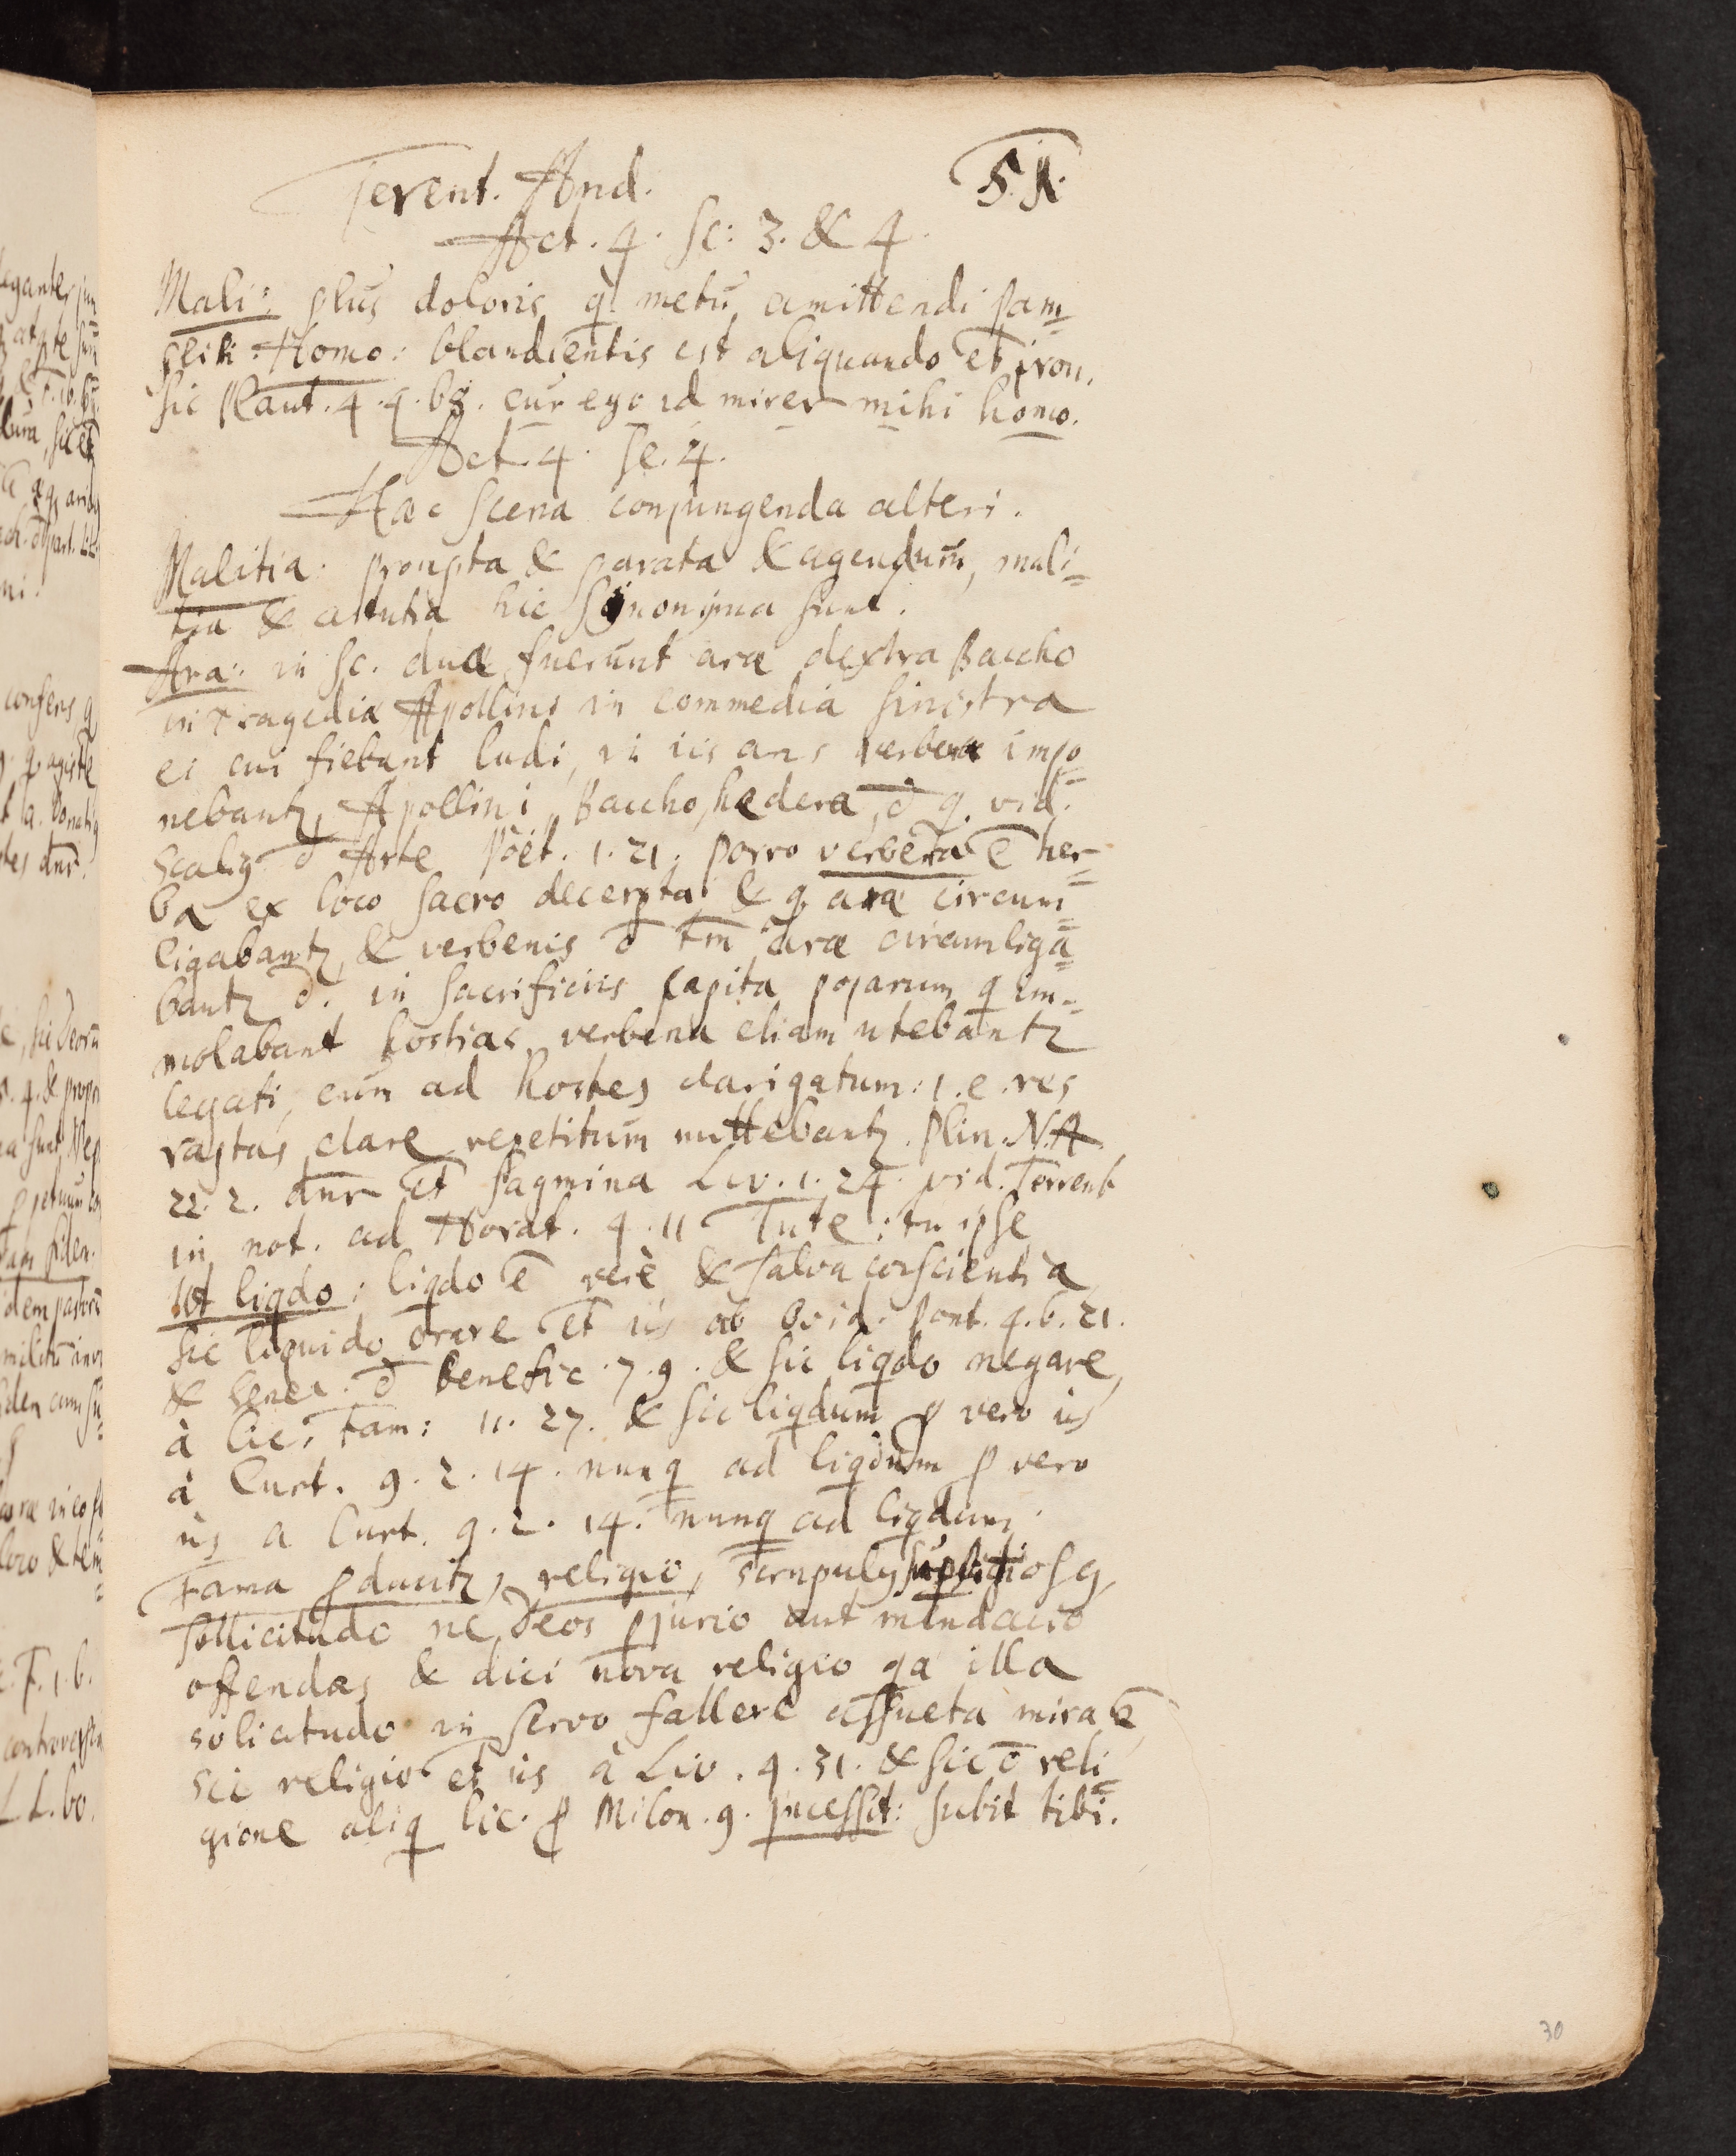 Terent. And. 51.
Act. 4. Sc: 3. & 4.
Mali: plus doloris q̀ metu amittendi Pam=
Homo: blandientis est aliquando et iron.
sic Plaut. 4. 4. 68. cur ego id mirer mihi homo.
Act. 4. Sc. 4.
Hæc Scena conjungenda alteri.
Malitia: prompta & parata & agendum, mali=
tia & astutia hic Synonyma sunt.
Ara: in Sc. duæ fuerunt aræ dextra Baccho
in tragediâ Apollinis in commediâ sinistra
ei cui fiebant ludi, in iis aris verbenæ impo=
nebantz Apollini, Baccho, hedera, d̄ q. vid.
Scalig d̄ Arte Poët. 1. 21. porro verbena ē her=
ba ex loco sacro decerpta & q. aræ circum=
ligabantz, & verbenis ō tm̄ aræ circumliga=
bantz in sacrificiis capita q im=
molabant hostias, verbena etiam utebantz
legati, cum ad hostes clarigatum: i. e. res
raptas clare repetitum mittebantz. Plin. N.H.
22. 2. dnr et Sagmina Liv. 1. 24. vid. Torrent
in not. ad Horat. 4. 11 Tute: tu ipse
Ut liqdo: liqdo ē verè & salva conscientia,
Sic liquido orare et iis ab Ovid. Pont. 4. 6. 21.
& Senec. d̄ benefic. 7. 9. & sic liqdo negare,
à Cic. Fam: 11. 27. & sic liqdum p vero iis
à Curt. 9. 2. 14. nunq ad liqdum p vero
iis a Curt. 9. 2. 14. nunq ad liqdum.
Fama pducitz, religio, scrupulg
sollicitudo ne Deos pjurio aut mendacio
offendas & dici nova religio qa illa
solicitudo in servo fallere assueta mira ē
Sic religio et iis à Liv. 4. 31. & sic reli=
gione aliq Cic. p Milon. 9. incessit: subit tibi.
30